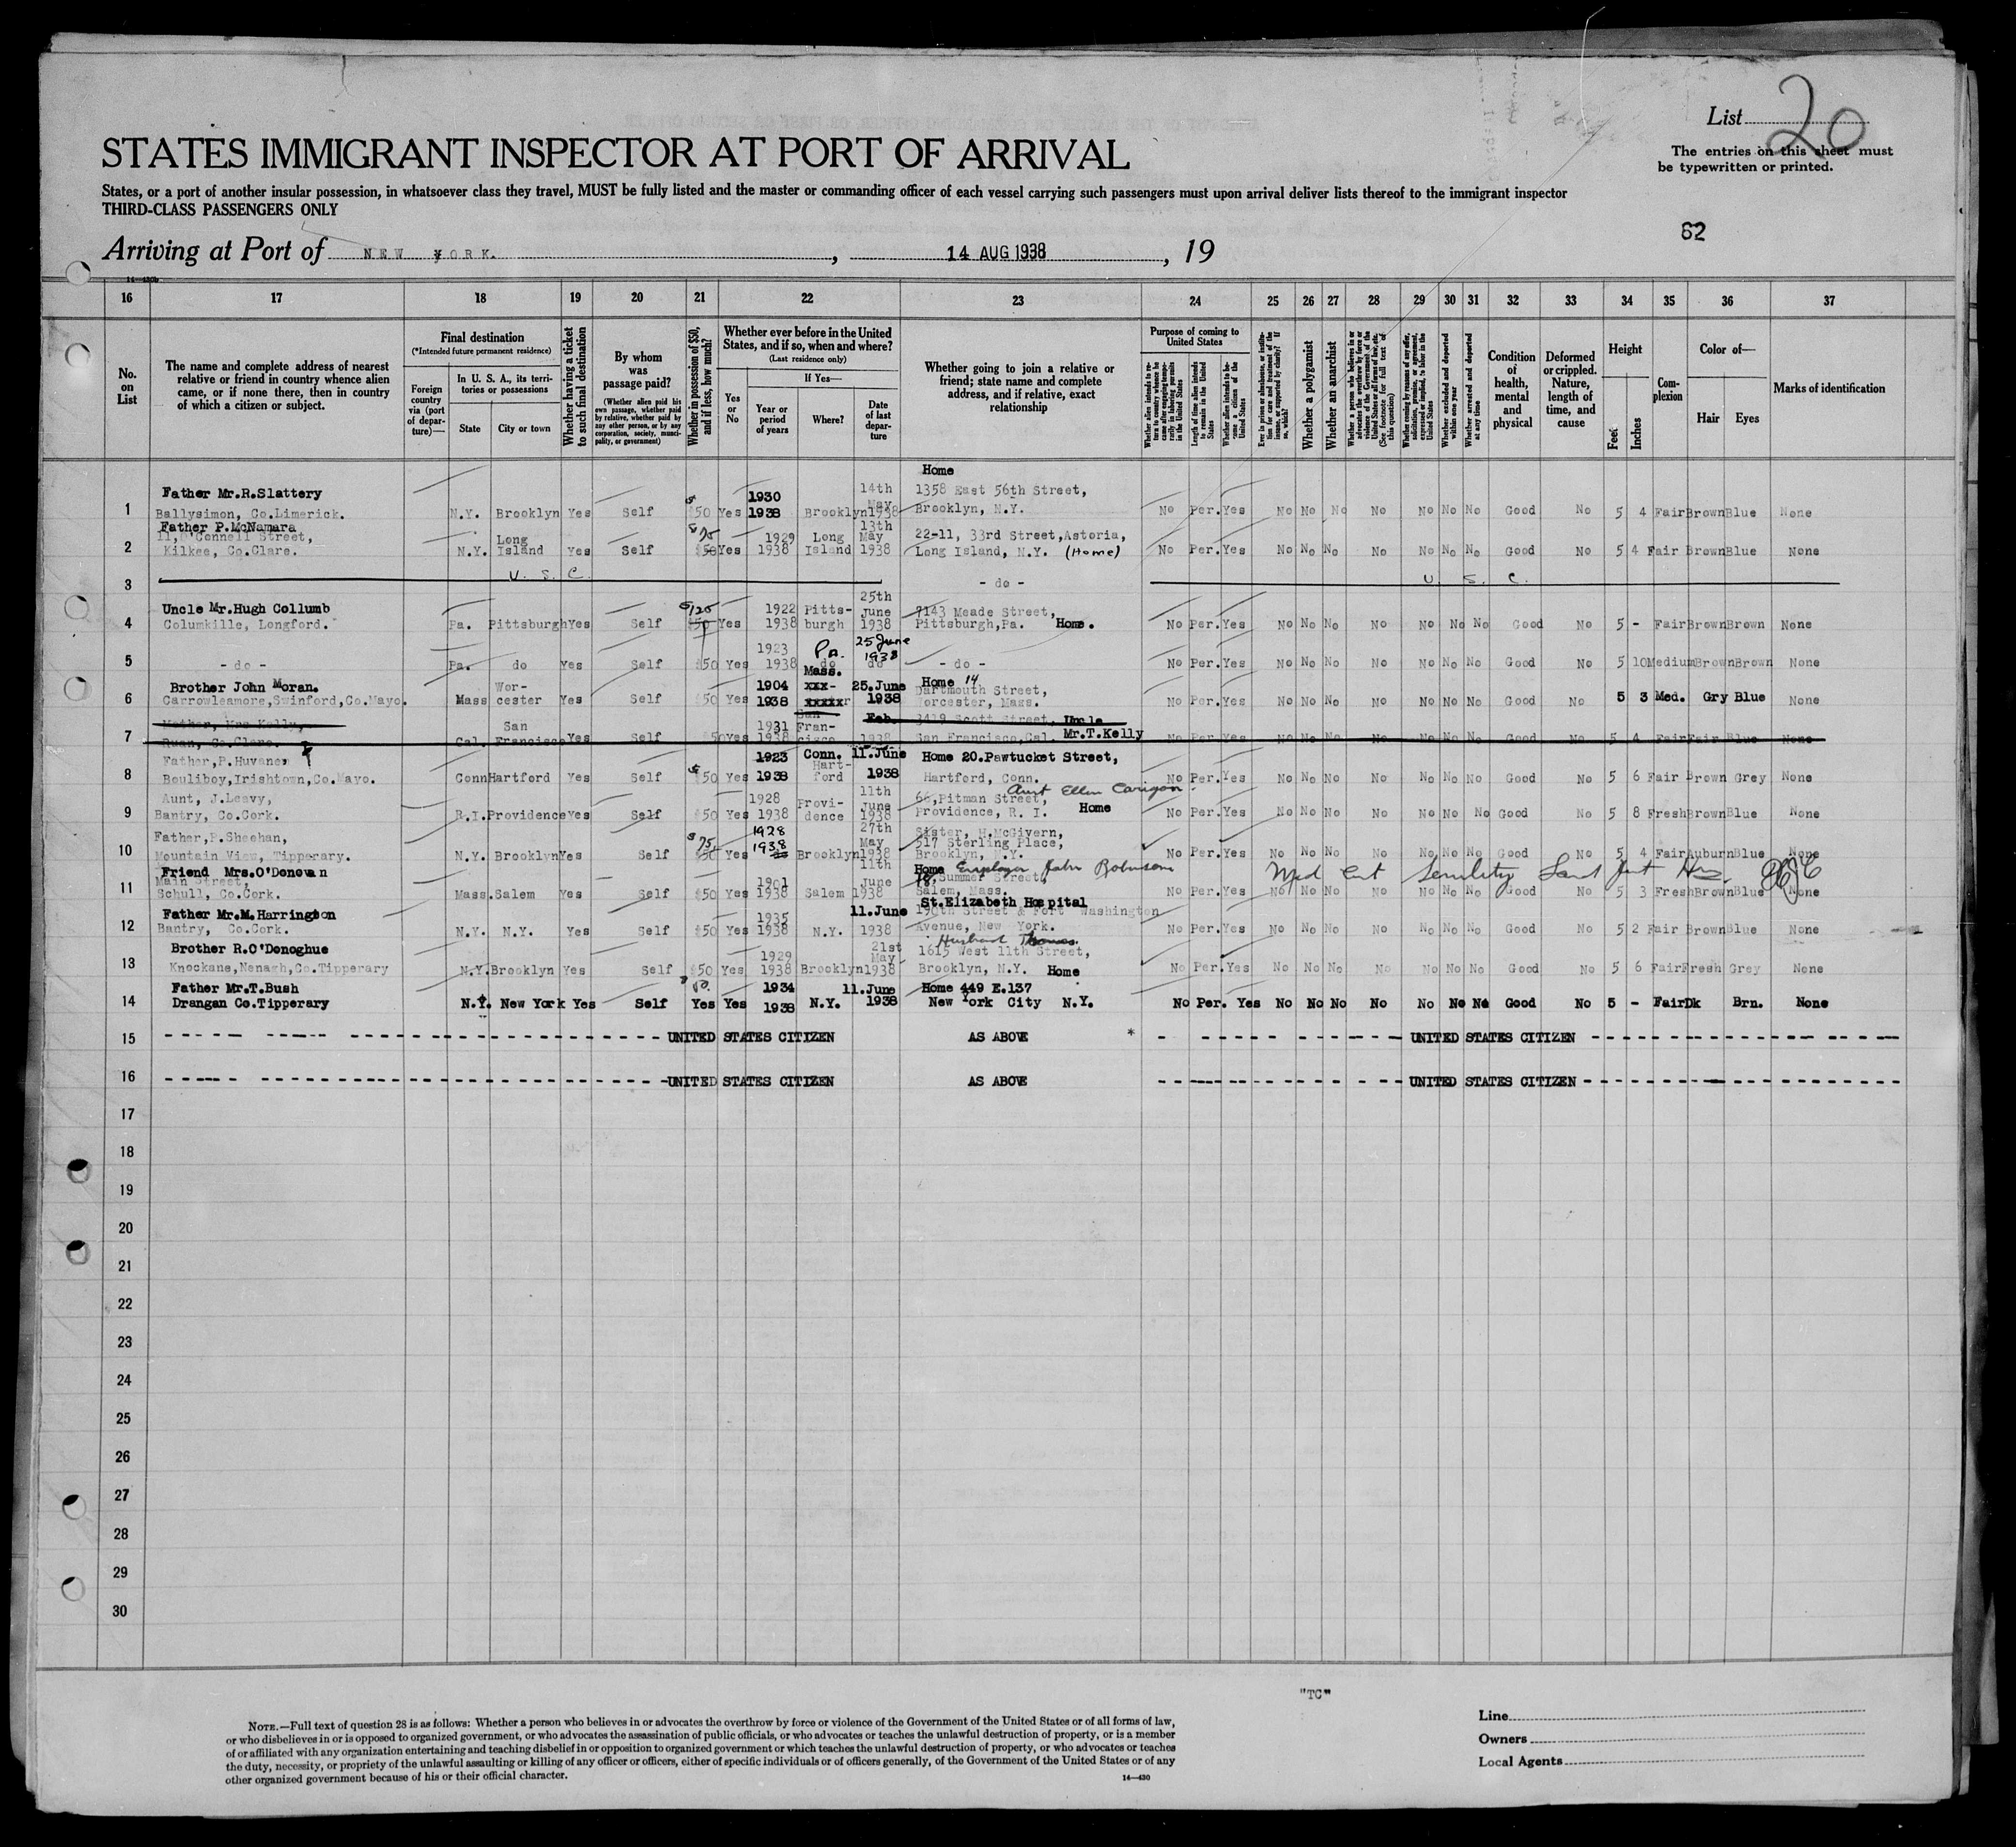 List 20
The entries on this sheet must
be typewritten or printed.
STATES IMMIGRANT INSPECTOR AT PORT OF ARRIVAL
States, or a port of another insular possession, in whatsoever class they travel, MUST be fully listed and the master or commanding officer of each vessel carrying such passengers must upon arrival deliver lists thereof to the immigrant inspector
THIRD-CLASS PASSENGERS ONLY
62
Arriving at Port of NEW YORK. , 14 AUG 1938 , 19
16 17 18 19 20 21 22 23 24 25 26 27 28 29 30 31 32 33 34 35 36 37
No. on List
The name and complete address of nearest relative or friend in country whence alien came, or if none there, then in country of which a citizen or subject.
Final destination
(*Intended future permanent residence)
Foreign country via (port of departure)—
In U. S. A., its territories or possessions
State City or town
Whether having a ticket to such final destination
By whom was passage paid?
(Whether alien paid his own passage, whether paid by relative, whether paid by any other person, or by any corporation, society, municipality, or government)
Whether in possession of $50, and if less, how much?
Whether ever before in the United States, and if so, when and where?
(Last residence only)
Yes or No
If Yes—
Year or period of years Where? Date of last departure
Whether going to join a relative or friend; state name and complete address, and if relative, exact relationship
Purpose of coming to United States
Length of time alien intends to remain in the United States
Whether alien intends to become a citizen of the United States
Whether a polygamist
Whether an anarchist
Whether excluded and deported within one year
Whether arrested and deported at any time
Condition of health, mental and physical
Deformed or crippled. Nature, length of time, and cause
Height
Feet Inches
Complexion
Color of—
Hair Eyes
Marks of identification
1 Father Mr.R.Slattery Ballysimon, Co.Limerick. N.Y. Brooklyn Yes Self $50 Yes 1930 1938 Brooklyn 14th May 1938 Home 1358 East 56th Street, Brooklyn, N.Y. No Per. Yes No No No No No No No Good No 5 4 Fair Brown Blue None
2 Father P.McNamara 11, O'Connell Street, Kilkee, Co.Clare. N.Y. Long Island Yes Self $50 $75 Yes 1929 1938 Long Island 13th May 1938 22-11, 33rd Street, Astoria, Long Island, N.Y. (Home) No Per. Yes No No No No No No No Good No 5 4 Fair Brown Blue None
3 U. S. C. - do - U. S. C.
4 Uncle Mr.Hugh Collumb Columkille, Longford. Pa. Pittsburgh Yes Self $50 $125 Yes 1922 1938 Pittsburgh 25th June 1938 7143 Meade Street, Pittsburgh, Pa. Home. No Per. Yes No No No No No No No Good No 5 - Fair Brown Brown None
5 - do - Pa. do Yes Self $50 Yes 1923 1938 Pa. do 25 June 1938 do - do - No Per. Yes No No No No No No No Good No 5 10 Medium Brown Brown None
6 Brother John Moran. Carrowleamore, Swinford, Co.Mayo. Mass Worcester Yes Self $50 Yes 1904 1938 Mass. 25.June 1938 Home 14 Dartmouth Street, Worcester, Mass. No Per. Yes No No No No No No No Good No 5 3 Med. Gry Blue None
7 Mother, Mrs Kelly, Ruan, Co.Clare. Cal. San Francisco Yes Self $50 Yes 1931 1938 San Francisco Feb. 1938 3419 Scott Street, San Francisco, Cal. Uncle Mr.T.Kelly No Per. Yes No No No No No No No Good No 5 4 Fair Fair Blue None
8 Father, P.Huvane, Bouliboy, Irishtown, Co.Mayo. Conn Hartford Yes Self $50 Yes 1923 1938 Conn. Hartford 11.June 1938 Home 20.Pawtucket Street, Hartford, Conn. No Per. Yes No No No No No No No Good No 5 6 Fair Brown Grey None
9 Aunt, J.Leavy, Bantry, Co.Cork. R.I. Providence Yes Self $50 Yes 1928 1938 Providence 11th June 1938 Aunt Ellen Carigan 66, Pitman Street, Providence, R. I. Home No Per. Yes No No No No No No No Good No 5 8 Fresh Brown Blue None
10 Father, P.Sheehan, Mountain View, Tipperary. N.Y. Brooklyn Yes Self $50 $75 Yes 1928 1938 Brooklyn 27th May 1938 Sister, H.McGivern, 517 Sterling Place, Brooklyn, N.Y. No Per. Yes No No No No No No No Good No 5 4 Fair Auburn Blue None
11 Friend Mrs.O'Donovan Main Street, Schull, Co.Cork. Mass. Salem Yes Self $50 Yes 1901 1938 Salem 11th June 1938 Home Employer John Robinson 18, Summer Street, Salem, Mass. No Per. Yes No No No No No No No Good No 5 3 Fresh Brown Blue None
Med Cert Senility
12 Father Mr.M.Harrington Bantry, Co.Cork. N.Y. N.Y. Yes Self $50 Yes 1935 1938 N.Y. 11.June 1938 St.Elizabeth Hospital 190th Street & Fort Washington Avenue, New York. No Per. Yes No No No No No No No Good No 5 2 Fair Brown Blue None
13 Brother R.O'Donoghue Knockane, Nenagh, Co.Tipperary N.Y. Brooklyn Yes Self $50 Yes 1929 1938 Brooklyn 21st May 1938 Husband Thomas 1615 West 11th Street, Brooklyn, N.Y. Home No Per. Yes No No No No No No No Good No 5 6 Fair Fresh Grey None
14 Father Mr.T.Bush Drangan Co.Tipperary N.Y. New York Yes Self Yes Yes 1934 1938 N.Y. 11.June 1938 Home 449 E.137 New York City N.Y. No Per. Yes No No No No No No No Good No 5 - Fair Dk Brn. None
15 UNITED STATES CITIZEN AS ABOVE * UNITED STATES CITIZEN
16 UNITED STATES CITIZEN AS ABOVE UNITED STATES CITIZEN
17
18
19
20
21
22
23
24
25
26
27
28
29
30
"TC"
NOTE.—Full text of question 28 is as follows: Whether a person who believes in or advocates the overthrow by force or violence of the Government of the United States or of all forms of law,
or who disbelieves in or is opposed to organized government, or who advocates the assassination of public officials, or who advocates or teaches the unlawful destruction of property, or is a member
of or affiliated with any organization entertaining and teaching disbelief in or opposition to organized government or which teaches the unlawful destruction of property, or who advocates or teaches
the duty, necessity, or propriety of the unlawful assaulting or killing of any officer or officers, either of specific individuals or of officers generally, of the Government of the United States or of any
other organized government because of his or their official character.
14—430
Line
Owners
Local Agents